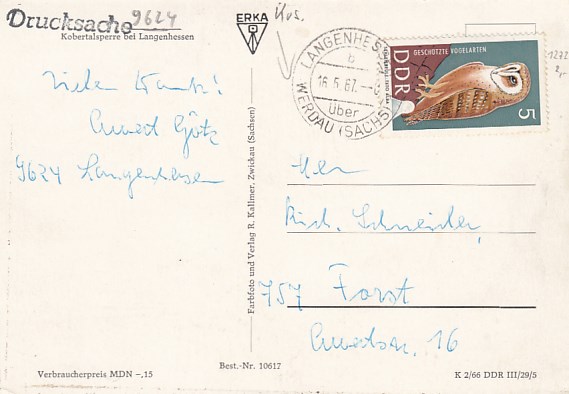 Drucksache 9624
Kobertalsperre bei Langenhessen
ERKA
LANGENHESSEN
b
16.5.67.
über
WERDAU (SACHS)
GESCHÜTZTE VOGELARTEN
DDR
5
1272
Vielen Dank!
Götz
9624 Langenhessen
Herrn
Rich. Schneider,
757 Forst
16
Farbfoto und Verlag R. Kallmer, Zwickau (Sachsen)
Verbraucherpreis MDN -,15
Best.-Nr. 10617
K 2/66 DDR III/29/5